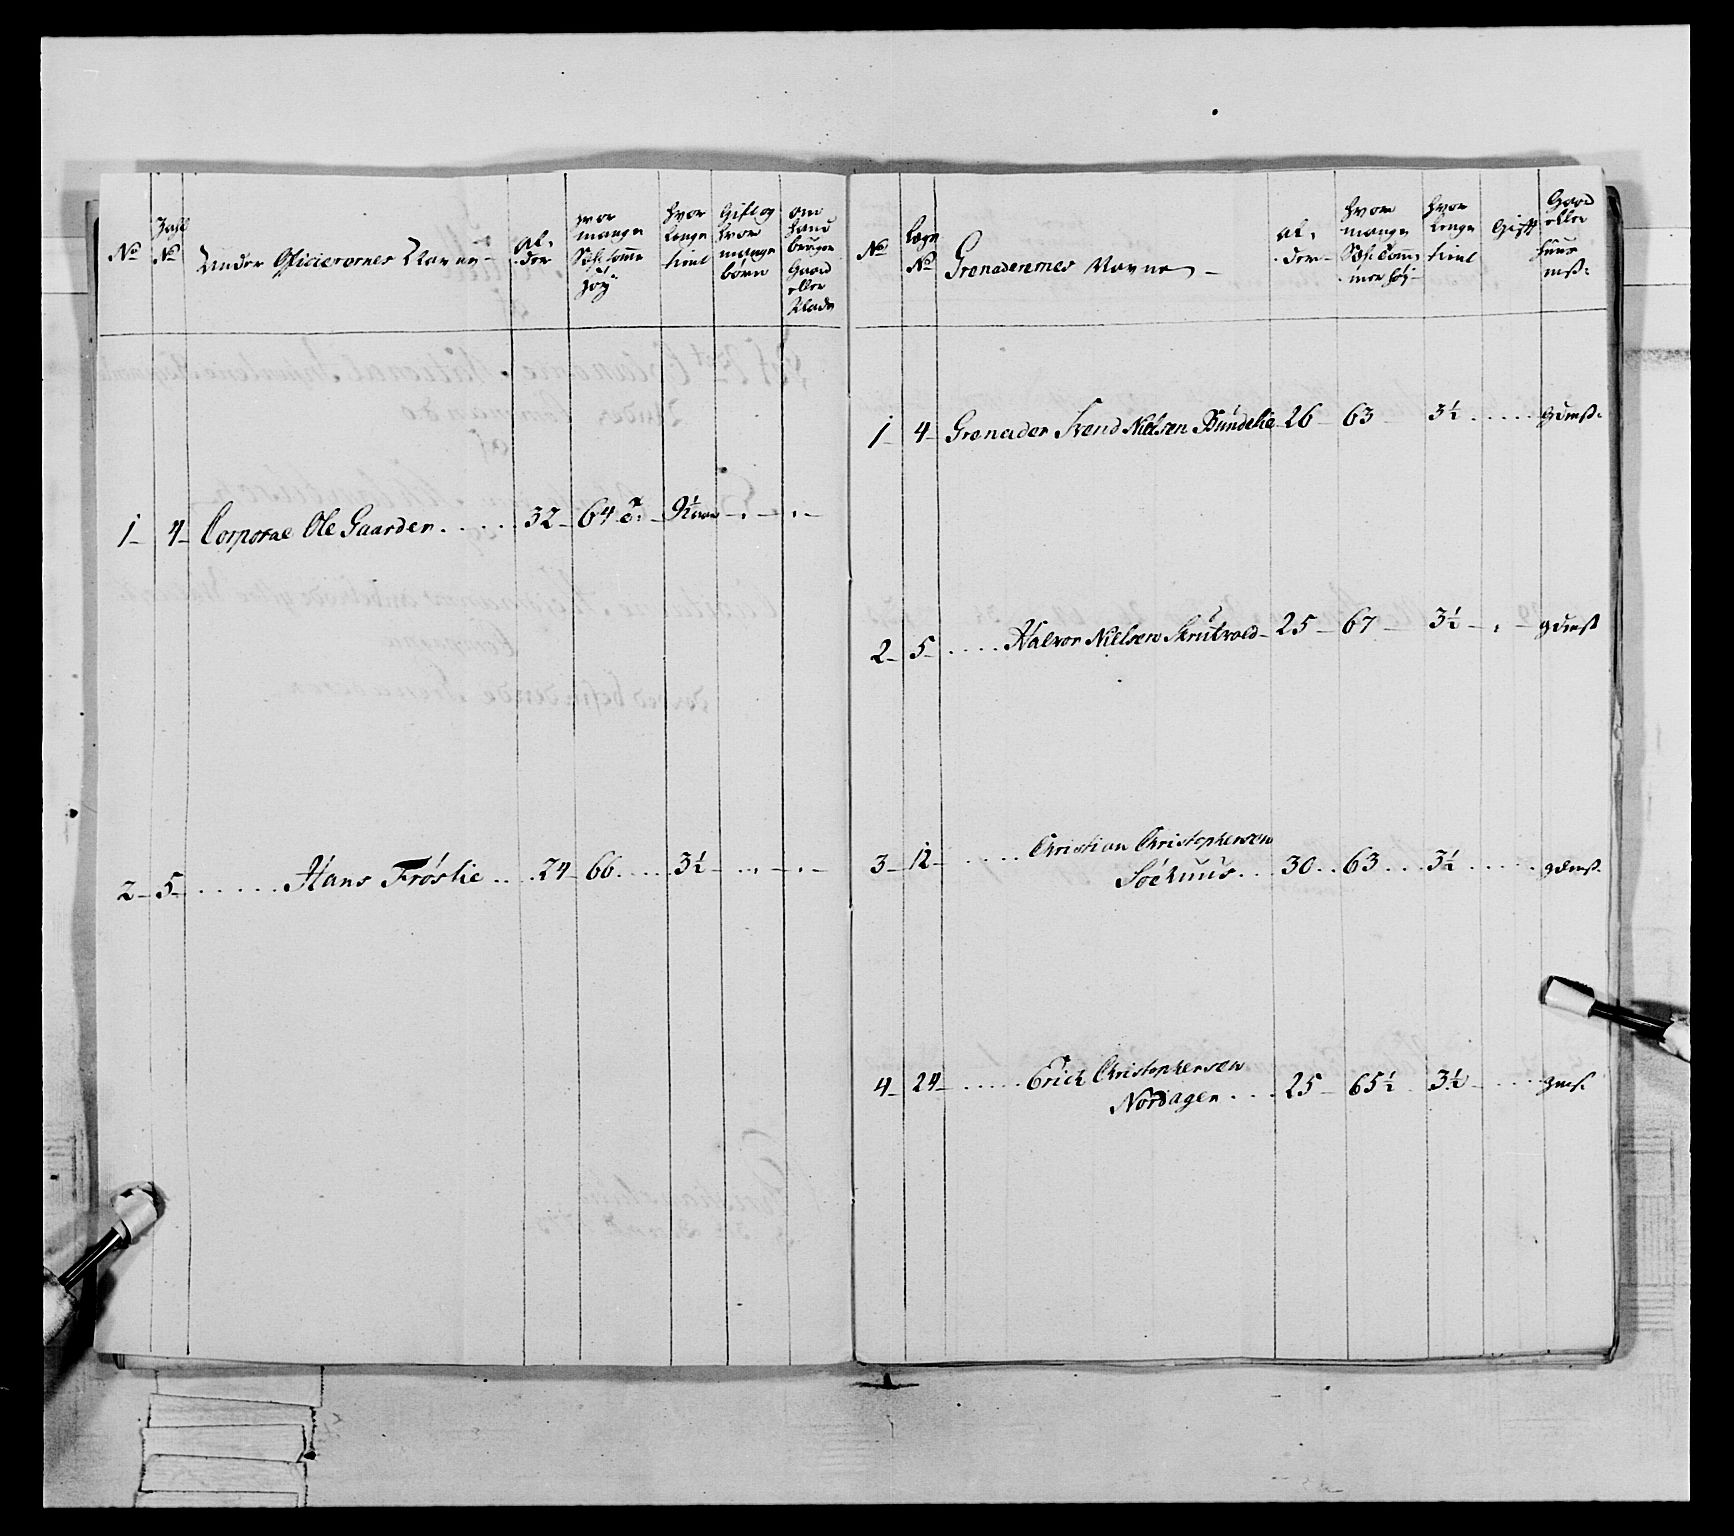 No
Zahl No
Under Officierernes Navne
Al-
der
hvor
mange
høy
hvor
længe
tient
Gift og
hvor
mange
børn
om
hand
bruger
Gaard
eller
Plads
1 4 Corporal Ole Gaarder 32 64
2 5 Hans Frøslie 24 66 3½
No
Lægs No
Grenaderernes Navne
Al-
der
hvor
mange
mer høy
hvor
længe
tient
Gift
Gaard
eller
1 4 Grenader Svend Nielsen Bundelie 26 63 3½
2 5 Halvor Nielsen Skrutvold 25 67 3½
3 12 Christian Christophersen
30 63 3½
4 24 Erich Christophersen
Nordagen 25 65½ 3½